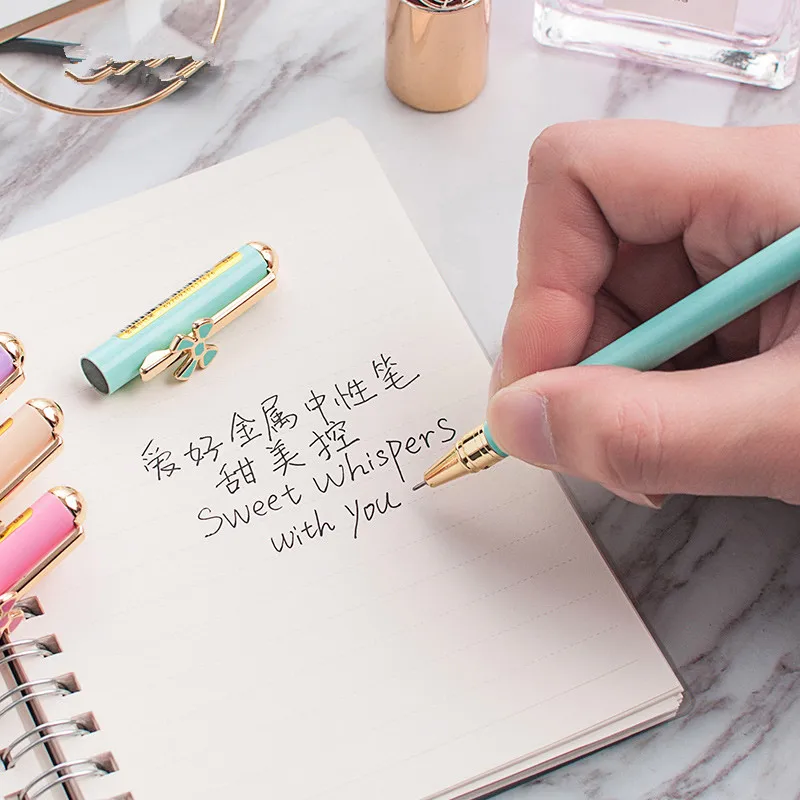 爱好金属中性笔
甜美控
Sweet Whispers
with you